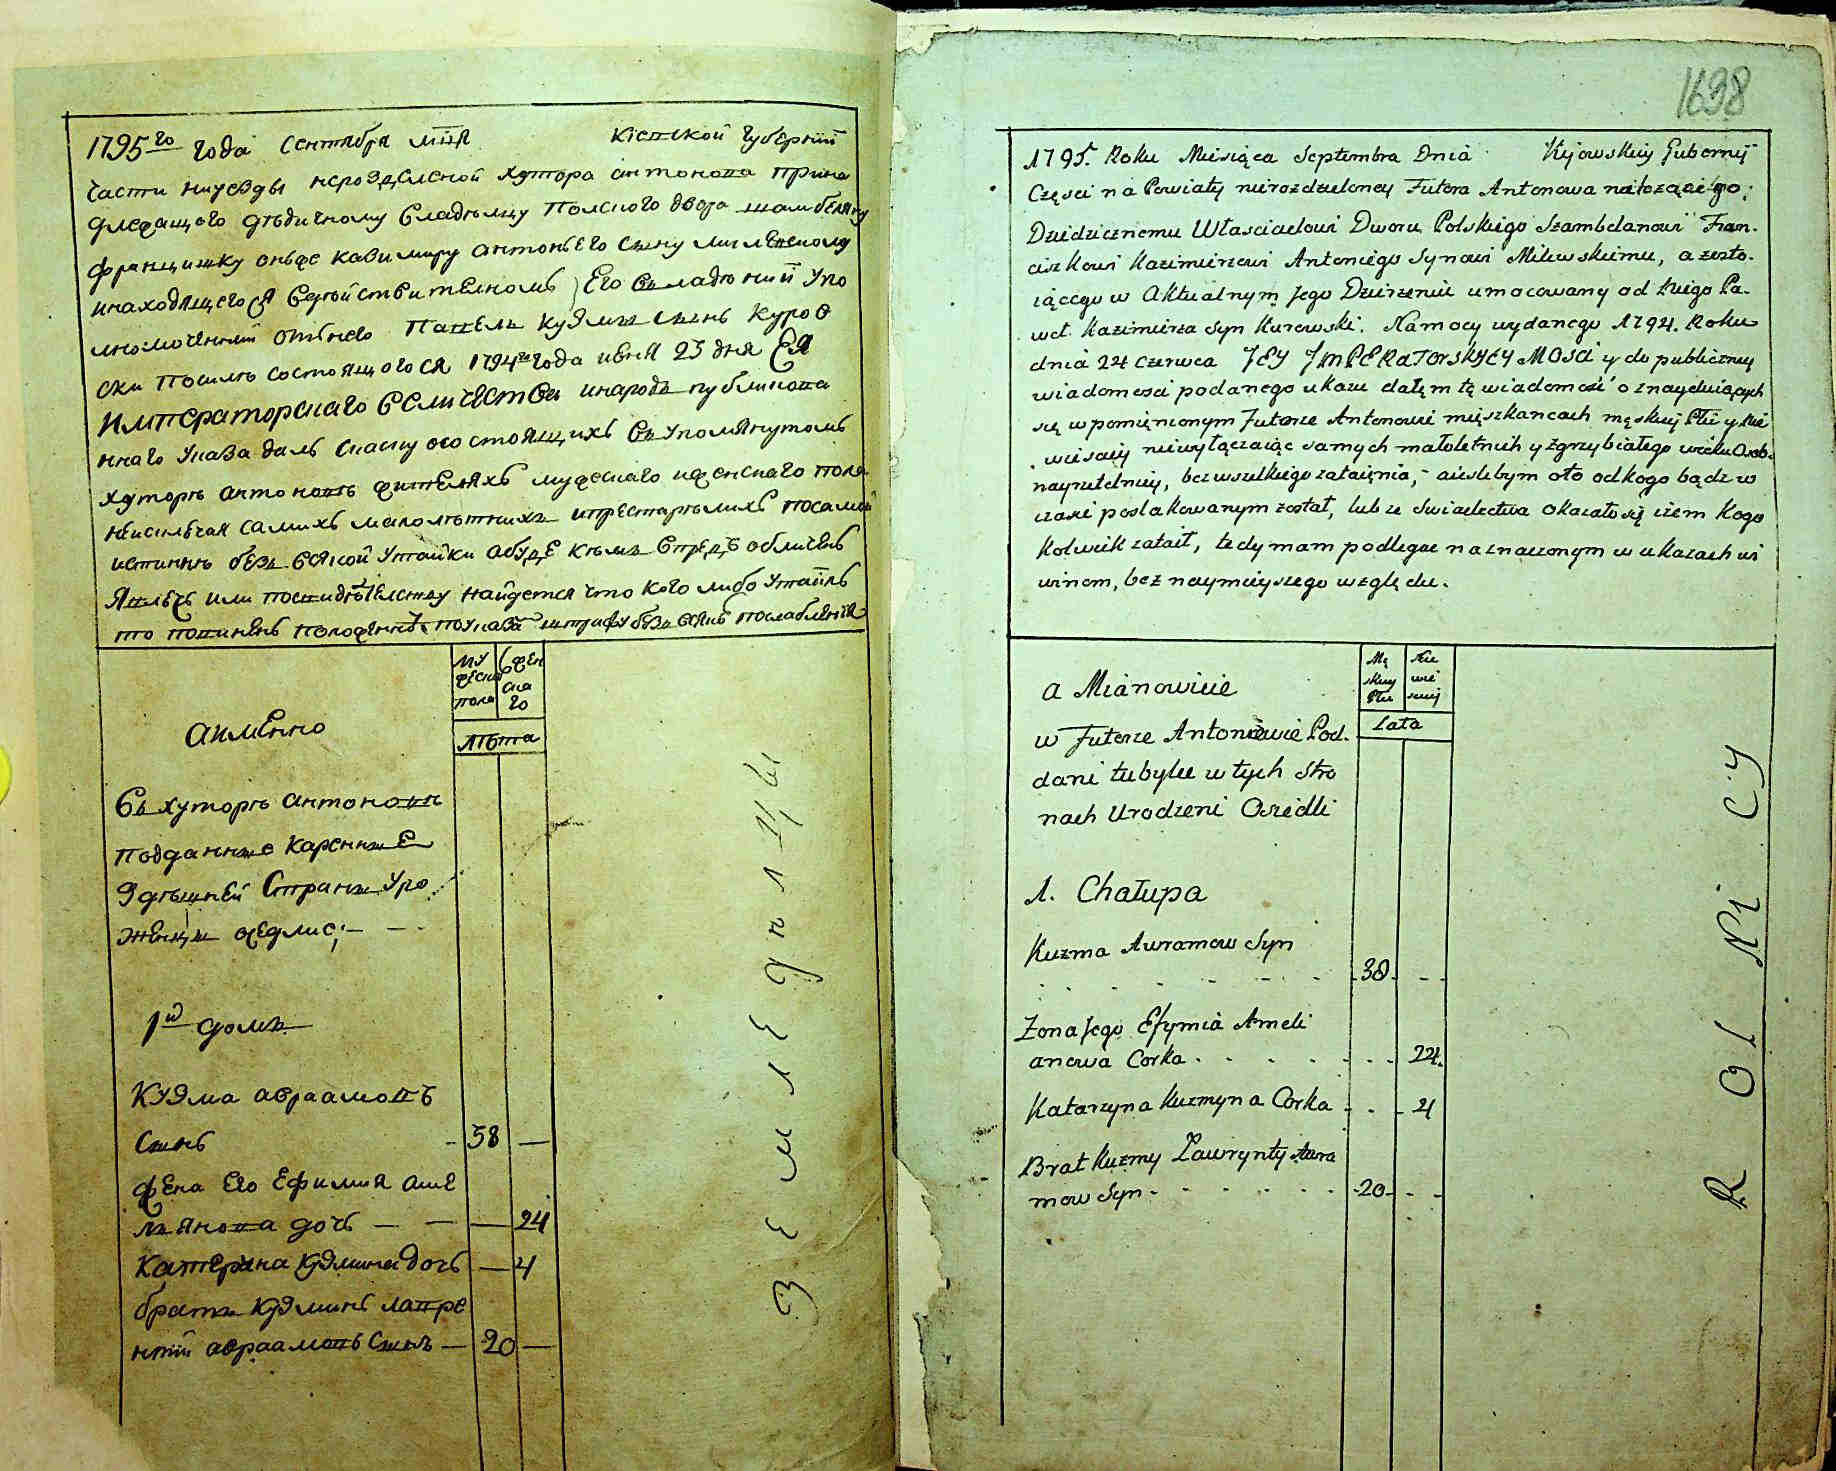 1795го года Сентября мця Кіевской губерніи
части науезды нероздѣленой хутора антонова прина
длежащого дѣдичному владѣлцу Полского двора шамбеляну
францишку онъже казимиру антоньего сыну милевскому
инаходящегося вдѣйствителномъ Его владѣніи упо
лномоченній отнего Павелъ кузмы сынъ куров
ски Посилѣ состоящогося 1794го года июня 23 дня ЕЯ
Императорскаго величества инародъ публикова
ннаго указа далъ скаску осостоящихъ въ упомянутомъ
хуторѣ антоновѣ жителяхъ мужескаго иженскаго пола
неисключая самихъ малолѣтнихъ ипрестарѣлихъ посамой
истиннѣ безъ всякой утайки абуде кѣмъ впредь обличенъ
явлюсь или посвидѣтелству найдется что кого либо утаилъ
то повиненъ положенному поуказа штрафу безъ всякъ послабленія
аименно
мужеска пола
женскаго
лѣта
Въ хуторѣ антоновѣ
подданные каренние
здѣшней Страны уро
женцы оседлие;
1й домъ
Кузма авраамовъ
Сынъ - 38 —
жена Его Ефимия аме
льянова дочь — — — 24
Катерина Кузмина дочь — 4
братъ Кузминъ лавре
нтій авраамовъ Сынъ — 20 —
земледѣлцы
1638
1795. Roku Miesiąca Septembra Dnia Kijowskiey Gubernij
Części na Powiaty nierozdzieloney Futora Antonowa należącego;
Dziedzicznemu Właścicielowi Dworu Polskiego Szambelanowi Fran-
ciszkowi Kazimierzowi Antoniego Synowi Milewskiemu, a zosta-
iącego w Aktualnym Jego Dzierżeniu umocowany od niego Pa-
weł Kazimierza Syn Kurowski. Na mocy wydanego 1794. Roku
dnia 24 Czerwca JEY IMPERATORSKIEY MOSCI y do publiczney
wiadomosci podanego ukazu dałem tę wiadomość o znayduiących
się w pomienionym Futorze Antonowie mięszkancach męskiey Płci y Nie
wiesciey niewyłączaiąc samych małoletnich y zgrzybiałego wieku Osob.
nayrzetelniey, bez wszelkiego zataienia; - aieslibym oto od kogo bądz w
czasie poslakowanym został, lub ze Swiadectwa okazało się iżem Kogo
kolwiek zataił, tedy mam podlegac naznaczonym w ukazach wi
winom, bez naymnieyszego względu.
a Mianowicie
Męskiey Płci
Niewiesciey
Lata
w Futorze Antonowie Pod-
dani tubylcy w tych stro
nach Urodzeni Osiedli
1. Chałupa
Kuzma Awramow Syn
- - - - - - - 38 - -
Zona Jego Efymia Ameli
anowa Corka - - - - - - - 24.
Katarzyna Kuzmyna Corka - - - 4
Brat Kuzmy Ławrynty Awra
mow Syn - - - - - - - 20 - - -
ROLNICY